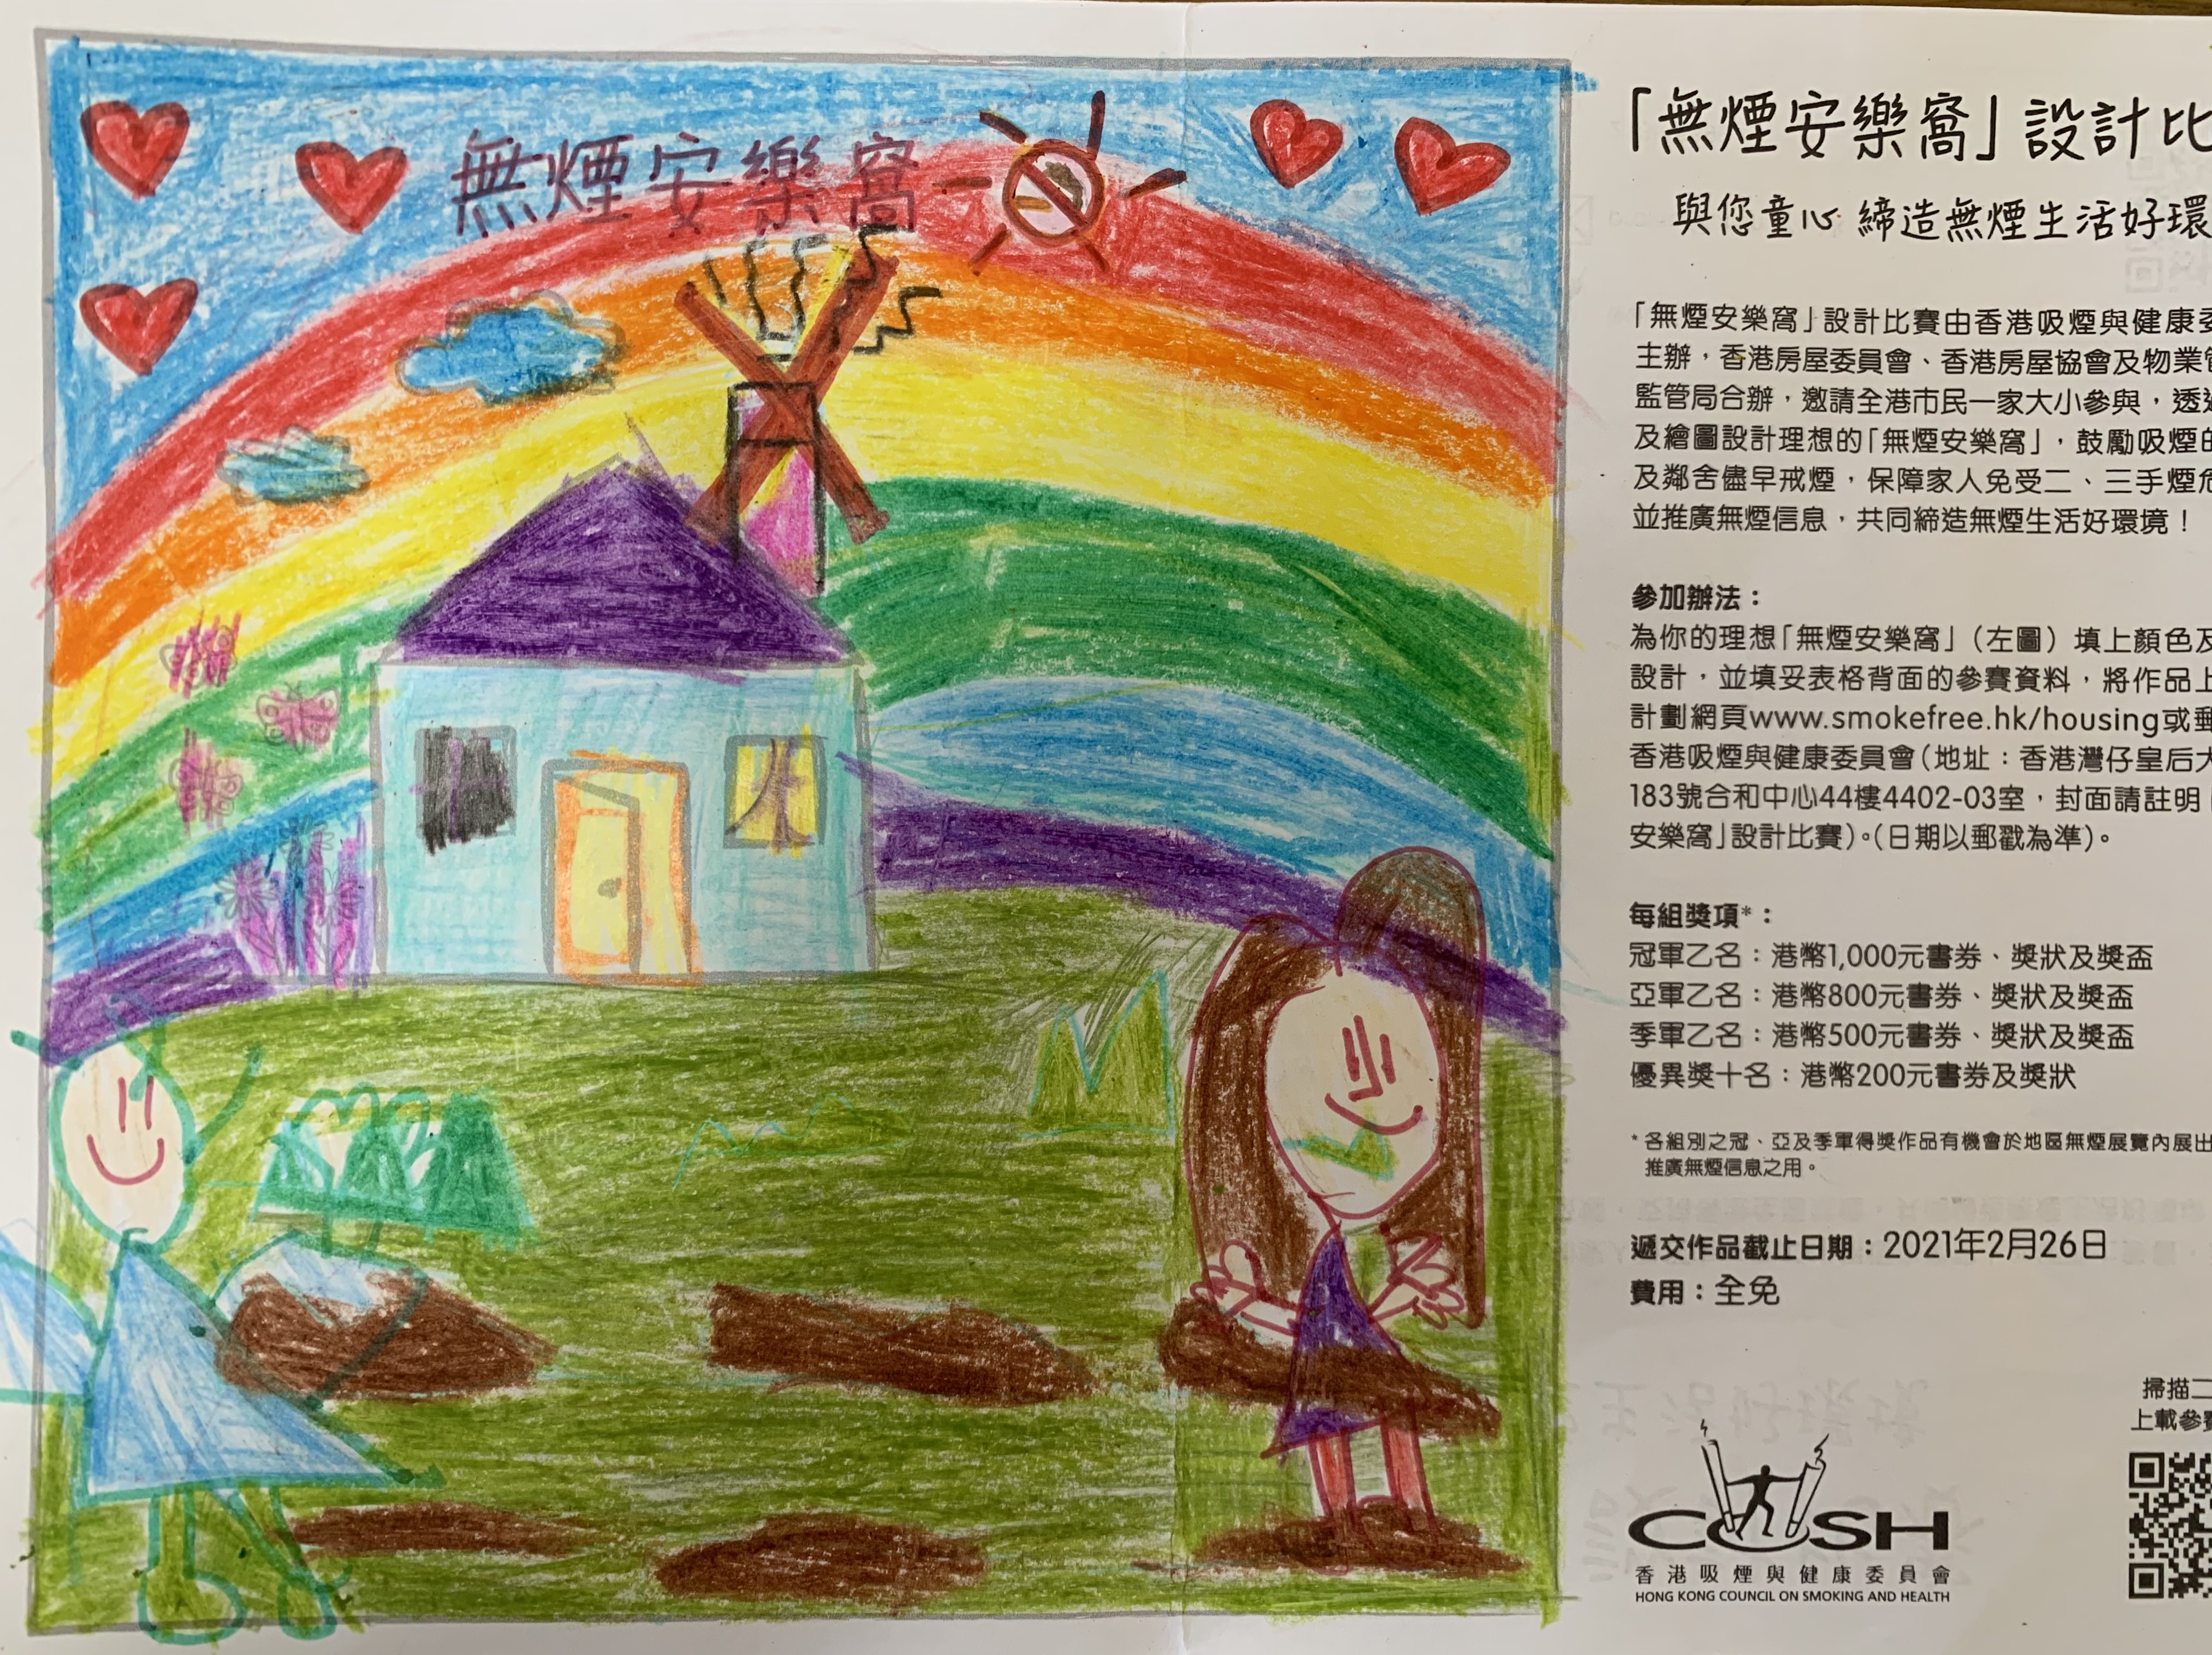 無煙安樂窩
「無煙安樂窩」設計比
與您童心 締造無煙生活好環
「無煙安樂窩」設計比賽由香港吸煙與健康委
主辦，香港房屋委員會、香港房屋協會及物業管
監管局合辦，邀請全港市民一家大小參與，透過
及繪圖設計理想的「無煙安樂窩」，鼓勵吸煙的
及鄰舍儘早戒煙，保障家人免受二、三手煙危
並推廣無煙信息，共同締造無煙生活好環境！
參加辦法：
為你的理想「無煙安樂窩」（左圖）填上顏色及
設計，並填妥表格背面的參賽資料，將作品上
計劃網頁www.smokefree.hk/housing或郵
香港吸煙與健康委員會（地址：香港灣仔皇后大
183號合和中心44樓4402-03室，封面請註明
安樂窩」設計比賽）。（日期以郵戳為準）。
每組獎項*：
冠軍乙名：港幣1,000元書券、獎狀及獎盃
亞軍乙名：港幣800元書券、獎狀及獎盃
季軍乙名：港幣500元書券、獎狀及獎盃
優異獎十名：港幣200元書券及獎狀
*各組別之冠、亞及季軍得獎作品有機會於地區無煙展覽內展出
推廣無煙信息之用。
遞交作品截止日期：2021年2月26日
費用：全免
掃描二
上載參賽
COSH
香港吸煙與健康委員會
HONG KONG COUNCIL ON SMOKING AND HEALTH